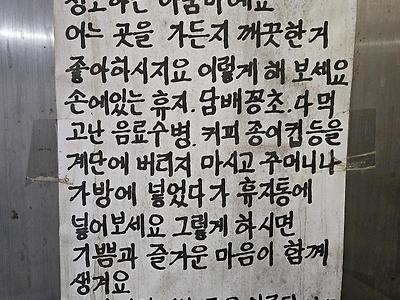 청소하는 아줌마에요
어느 곳을 가든지 깨끗한거
좋아하시지요 이렇게 해 보세요
손에있는 휴지. 담배꽁초. 다 먹
고난 음료수병. 커피 종이컵 등을
계단에 버리지 마시고 주머니나
가방에 넣었다가 휴지통에
넣어보세요 그렇게 하시면
기쁨과 즐거운 마음이 함께
생겨요